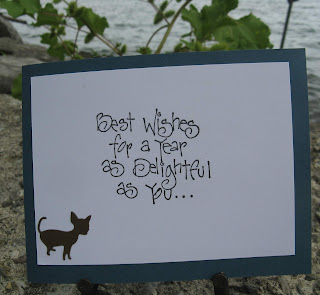 Best Wishes
for a Year
as Delightful
as You...